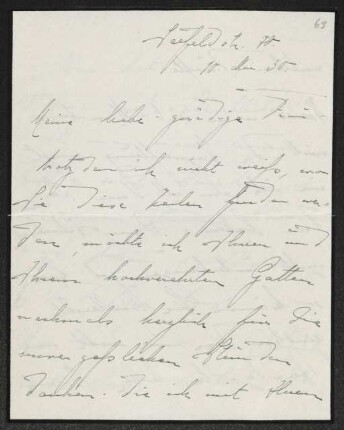 63
Seefeldstr. 18
Meine liebe gnädige Frau –
trotzdem ich nicht weiss, wo
Sie diese Zeilen finden wer-
den, möchte ich Ihnen und
Ihrem hochverehrten Gatten
nochmals herzlich für die
unvergesslichen Stunden
danken. Die ich mit Ihnen